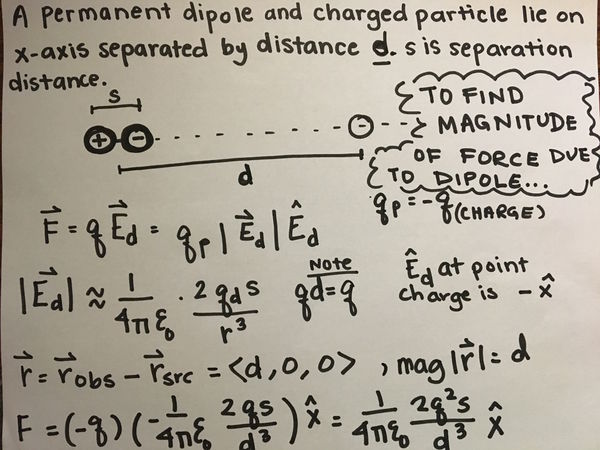 A permanent dipole and charged particle lie on
x-axis separated by distance d. s is separation
distance.
s
+ - - - -
d
TO FIND
MAGNITUDE
OF FORCE DUE
TO DIPOLE...
q_p = -q (CHARGE)
F⃗ = q E⃗_d = q_p |E⃗_d| Ê_d
|E⃗_d| ≈ 1/(4πε₀) · 2 q_d s / r³
Note
qd = q
Ê_d at point
charge is - x̂
r⃗ = r⃗_obs - r⃗_src = <d, 0, 0> , mag |r⃗| = d
F = (-q) (- 1/(4πε₀) 2qs/d³) x̂ = 1/(4πε₀) 2q²s/d³ x̂